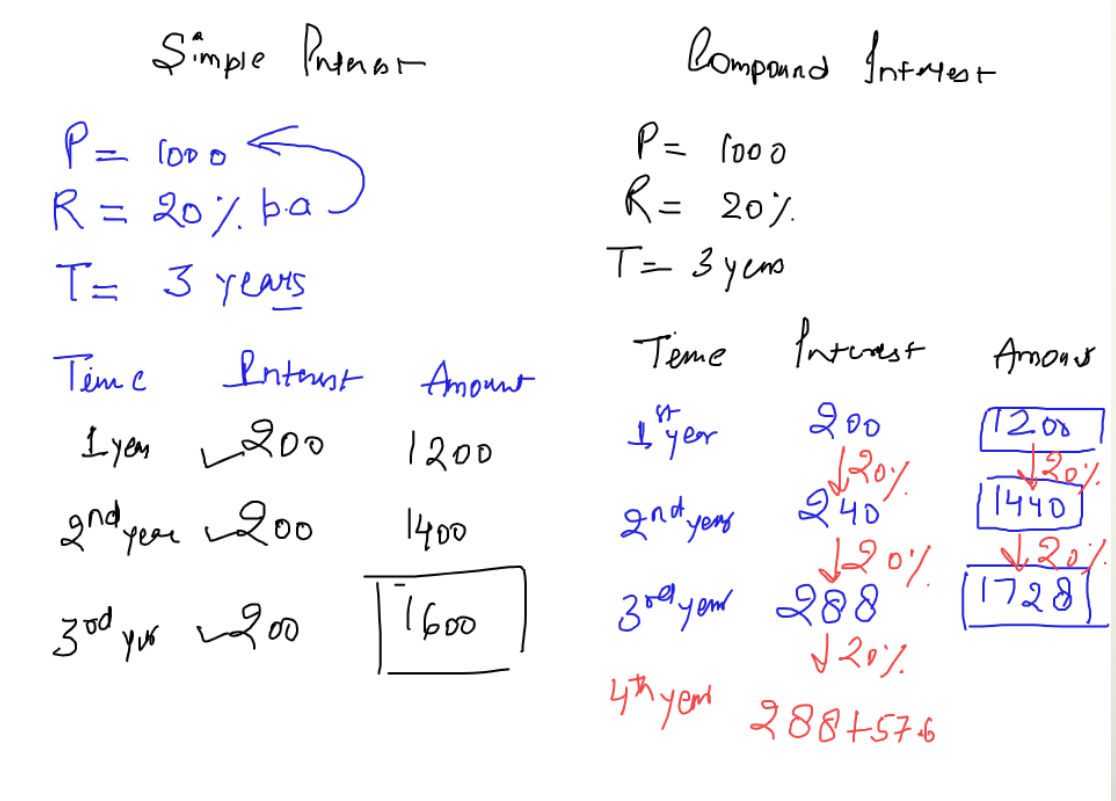 Simple Interest
P = 1000
R = 20% p.a
T = 3 years
Time Interest Amount
1 year 200 1200
2nd year 200 1400
3rd yr 200 1600
Compound Interest
P = 1000
R = 20%.
T = 3 years
Time Interest Amount
1st year 200 1200
↓20% ↓20%
2nd year 240 1440
↓20% ↓20%
3rd year 288 1728
↓20%
4th year 288+57.6